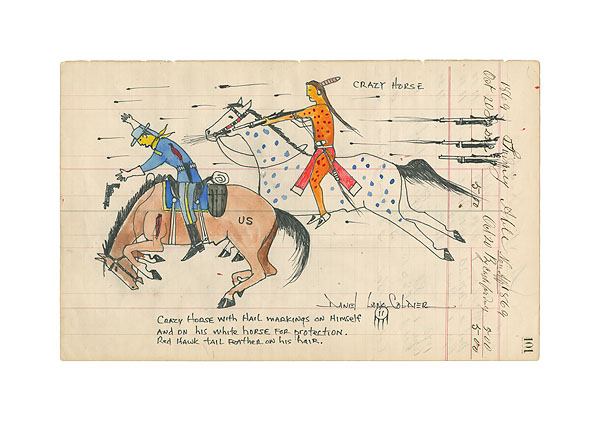 CRAZY HORSE
US
DANIEL LONG SOLDIER
11
CRAZY HORSE WITH HAIL MARKINGS ON HIMSELF
AND ON HIS WHITE HORSE FOR PROTECTION.
RED HAWK TAIL FEATHER ON HIS HAIR.
1869
Oct 20
5.00
Oct 20
5.00
5.00
101